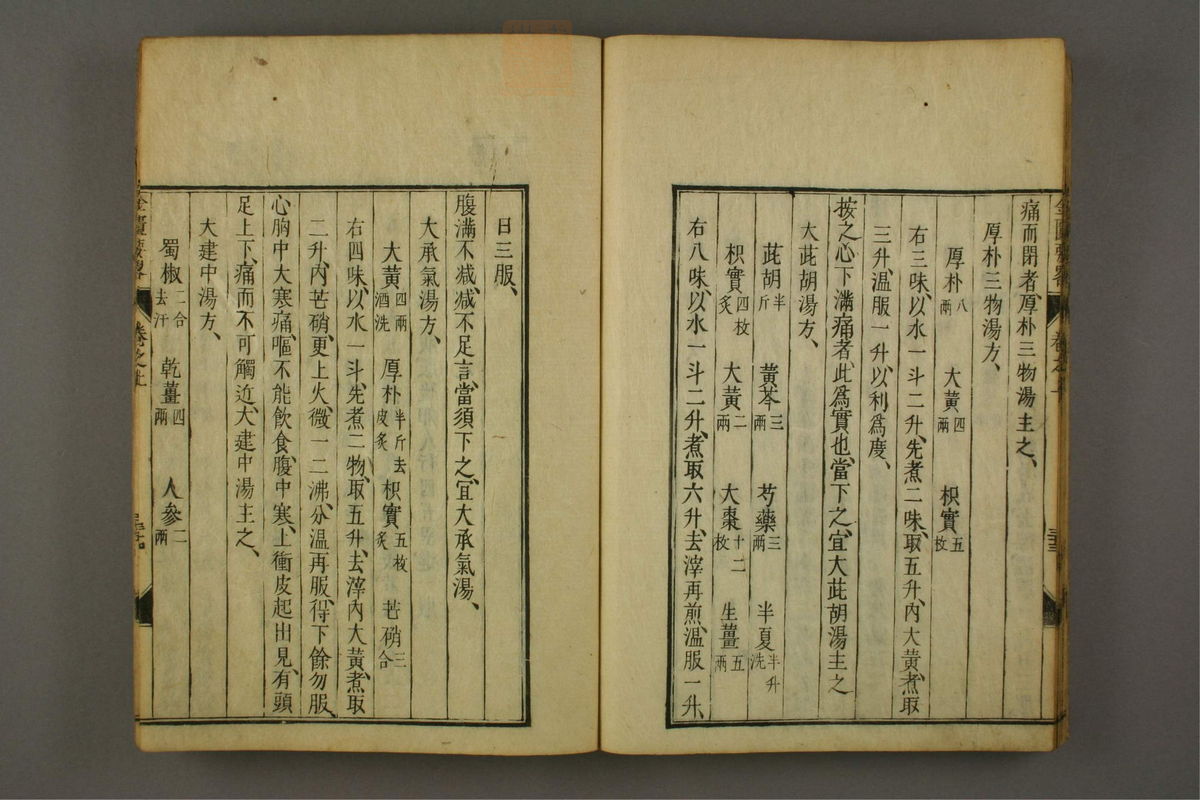 痛而閉者、厚朴三物湯主之、
厚朴三物湯方、
厚朴八兩 大黃四兩 枳實五枚
右三味、以水一斗二升、先煮二味、取五升、內大黃、煮取
三升、温服一升、以利爲度、
按之心下滿痛者、此爲實也、當下之、宜大茈胡湯主之
大茈胡湯方、
茈胡半斤 黃芩三兩 芍藥三兩 半夏半升洗
枳實四枚炙 大黃二兩 大棗十二枚 生薑五兩
右八味、以水一斗二升、煮取六升、去滓再煎、温服一升、
日三服、
腹滿不减、减不足言、當須下之、宜大承氣湯、
大承氣湯方、
大黃四兩酒洗 厚朴半斤去皮炙 枳實五枚炙 芒硝三合
右四味、以水一斗、先煮二物、取五升、去滓內大黃、煮取
二升、內芒硝、更上火、微一二沸、分温再服、得下餘勿服、
心胸中大寒痛、嘔不能飲食、腹中寒、上衝皮起出見、有頭
足上下、痛而不可觸近、大建中湯主之、
大建中湯方、
蜀椒二合去汗 乾薑四兩 人參二兩
金匱要畧 卷之上